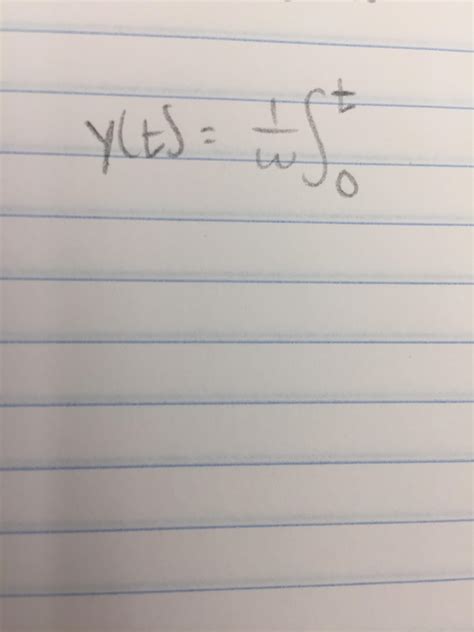 y(t) = 1/ω ∫₀ᵗ